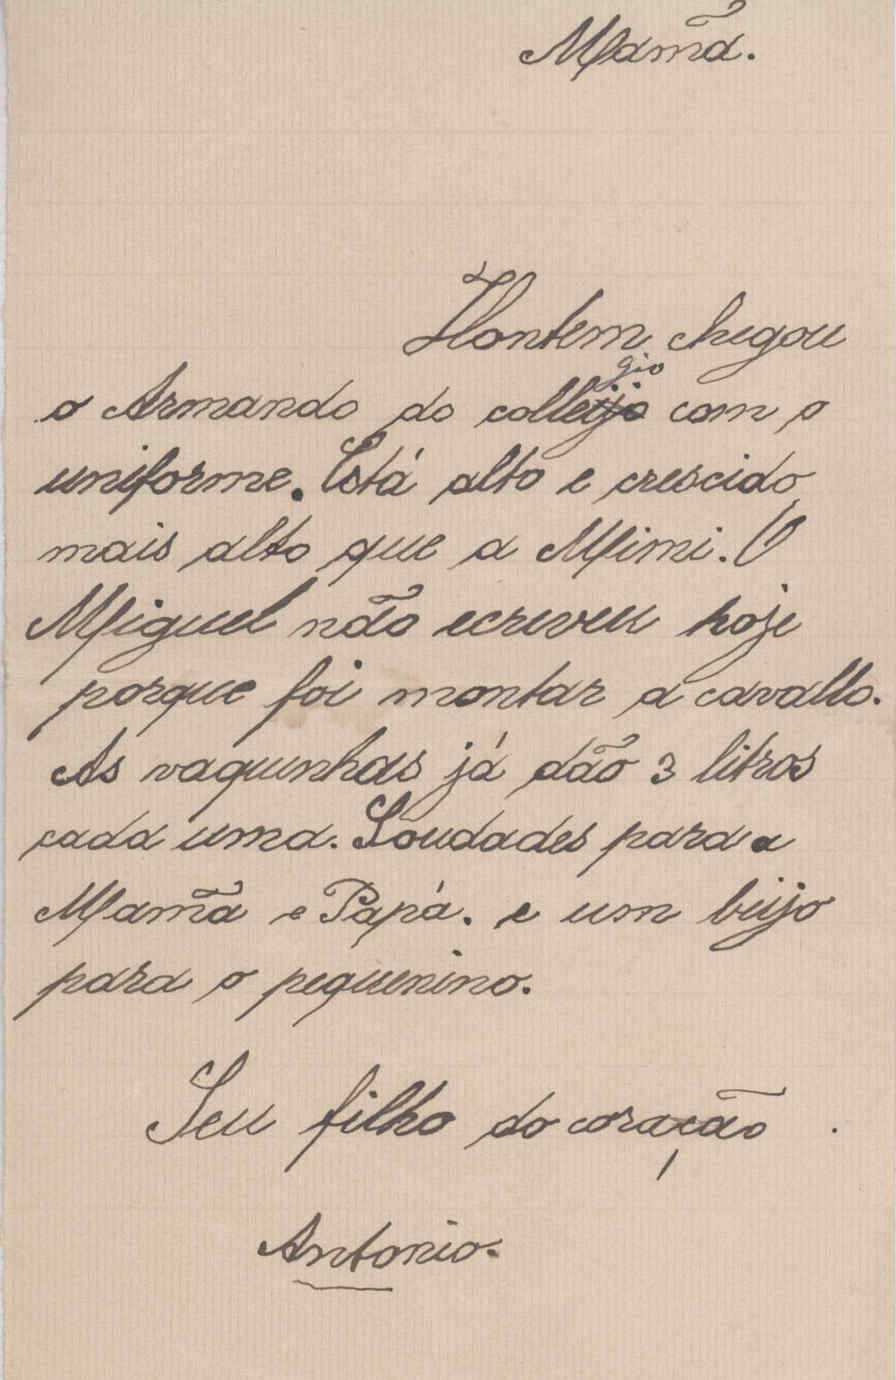 Mamã.
Hontem chegou
o Armando do collegio com o
uniforme. Está alto e crescido
mais alto que a Mimi. O
Miguel não ecreveu hoje
porque foi montar a cavallo.
As vaquinhas já dão 3 litros
cada uma. Soudades para a
Mamã e Papá. e um beijo
para o pequenino.
Seu filho do coração
Antonio.